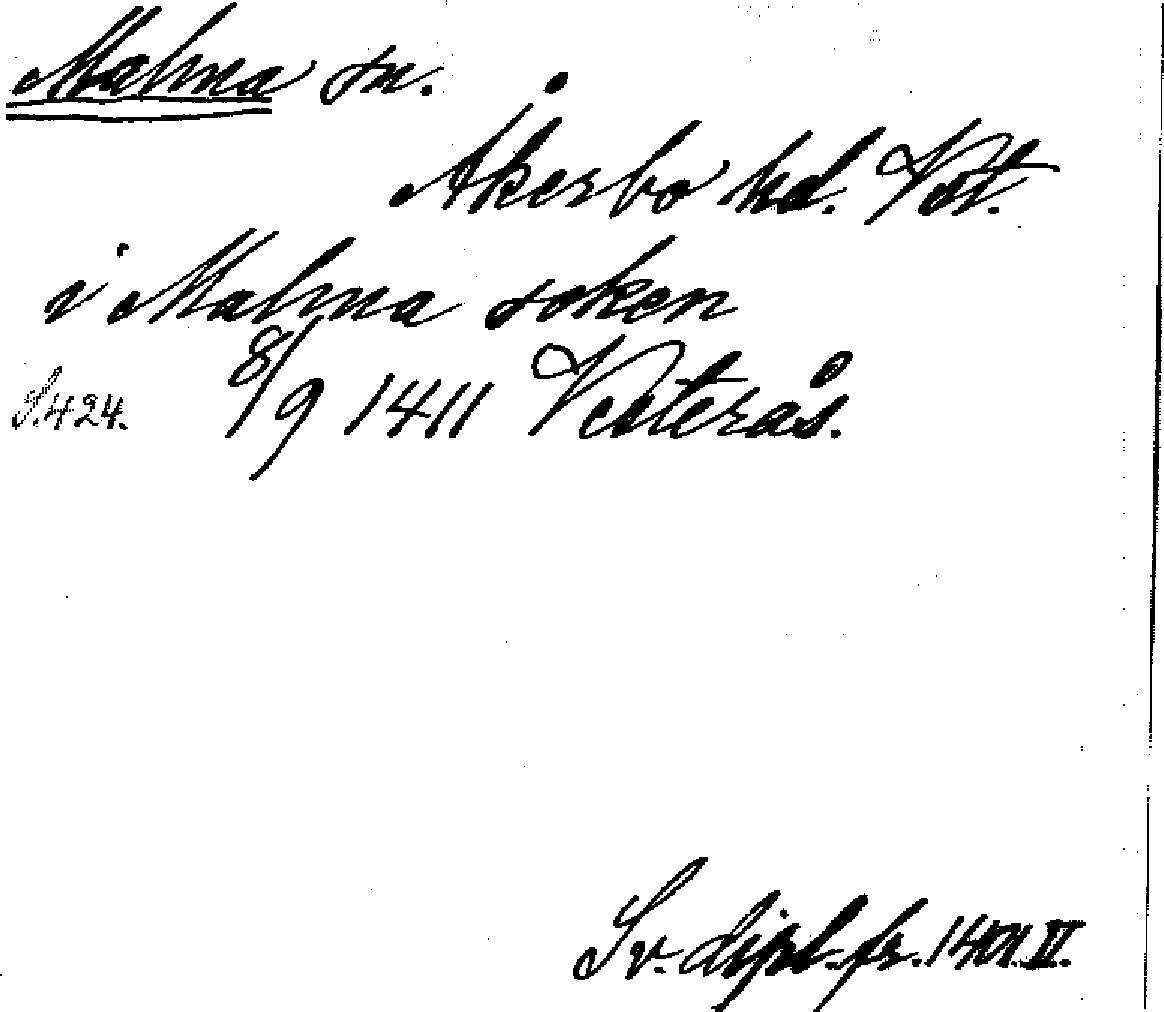 Malma sn.
Åkerbo hd. Vstm.
i Malma soken
S. 424. 8/9 1411 Vesterås.
Sv. dipl. fr. 1401 II.